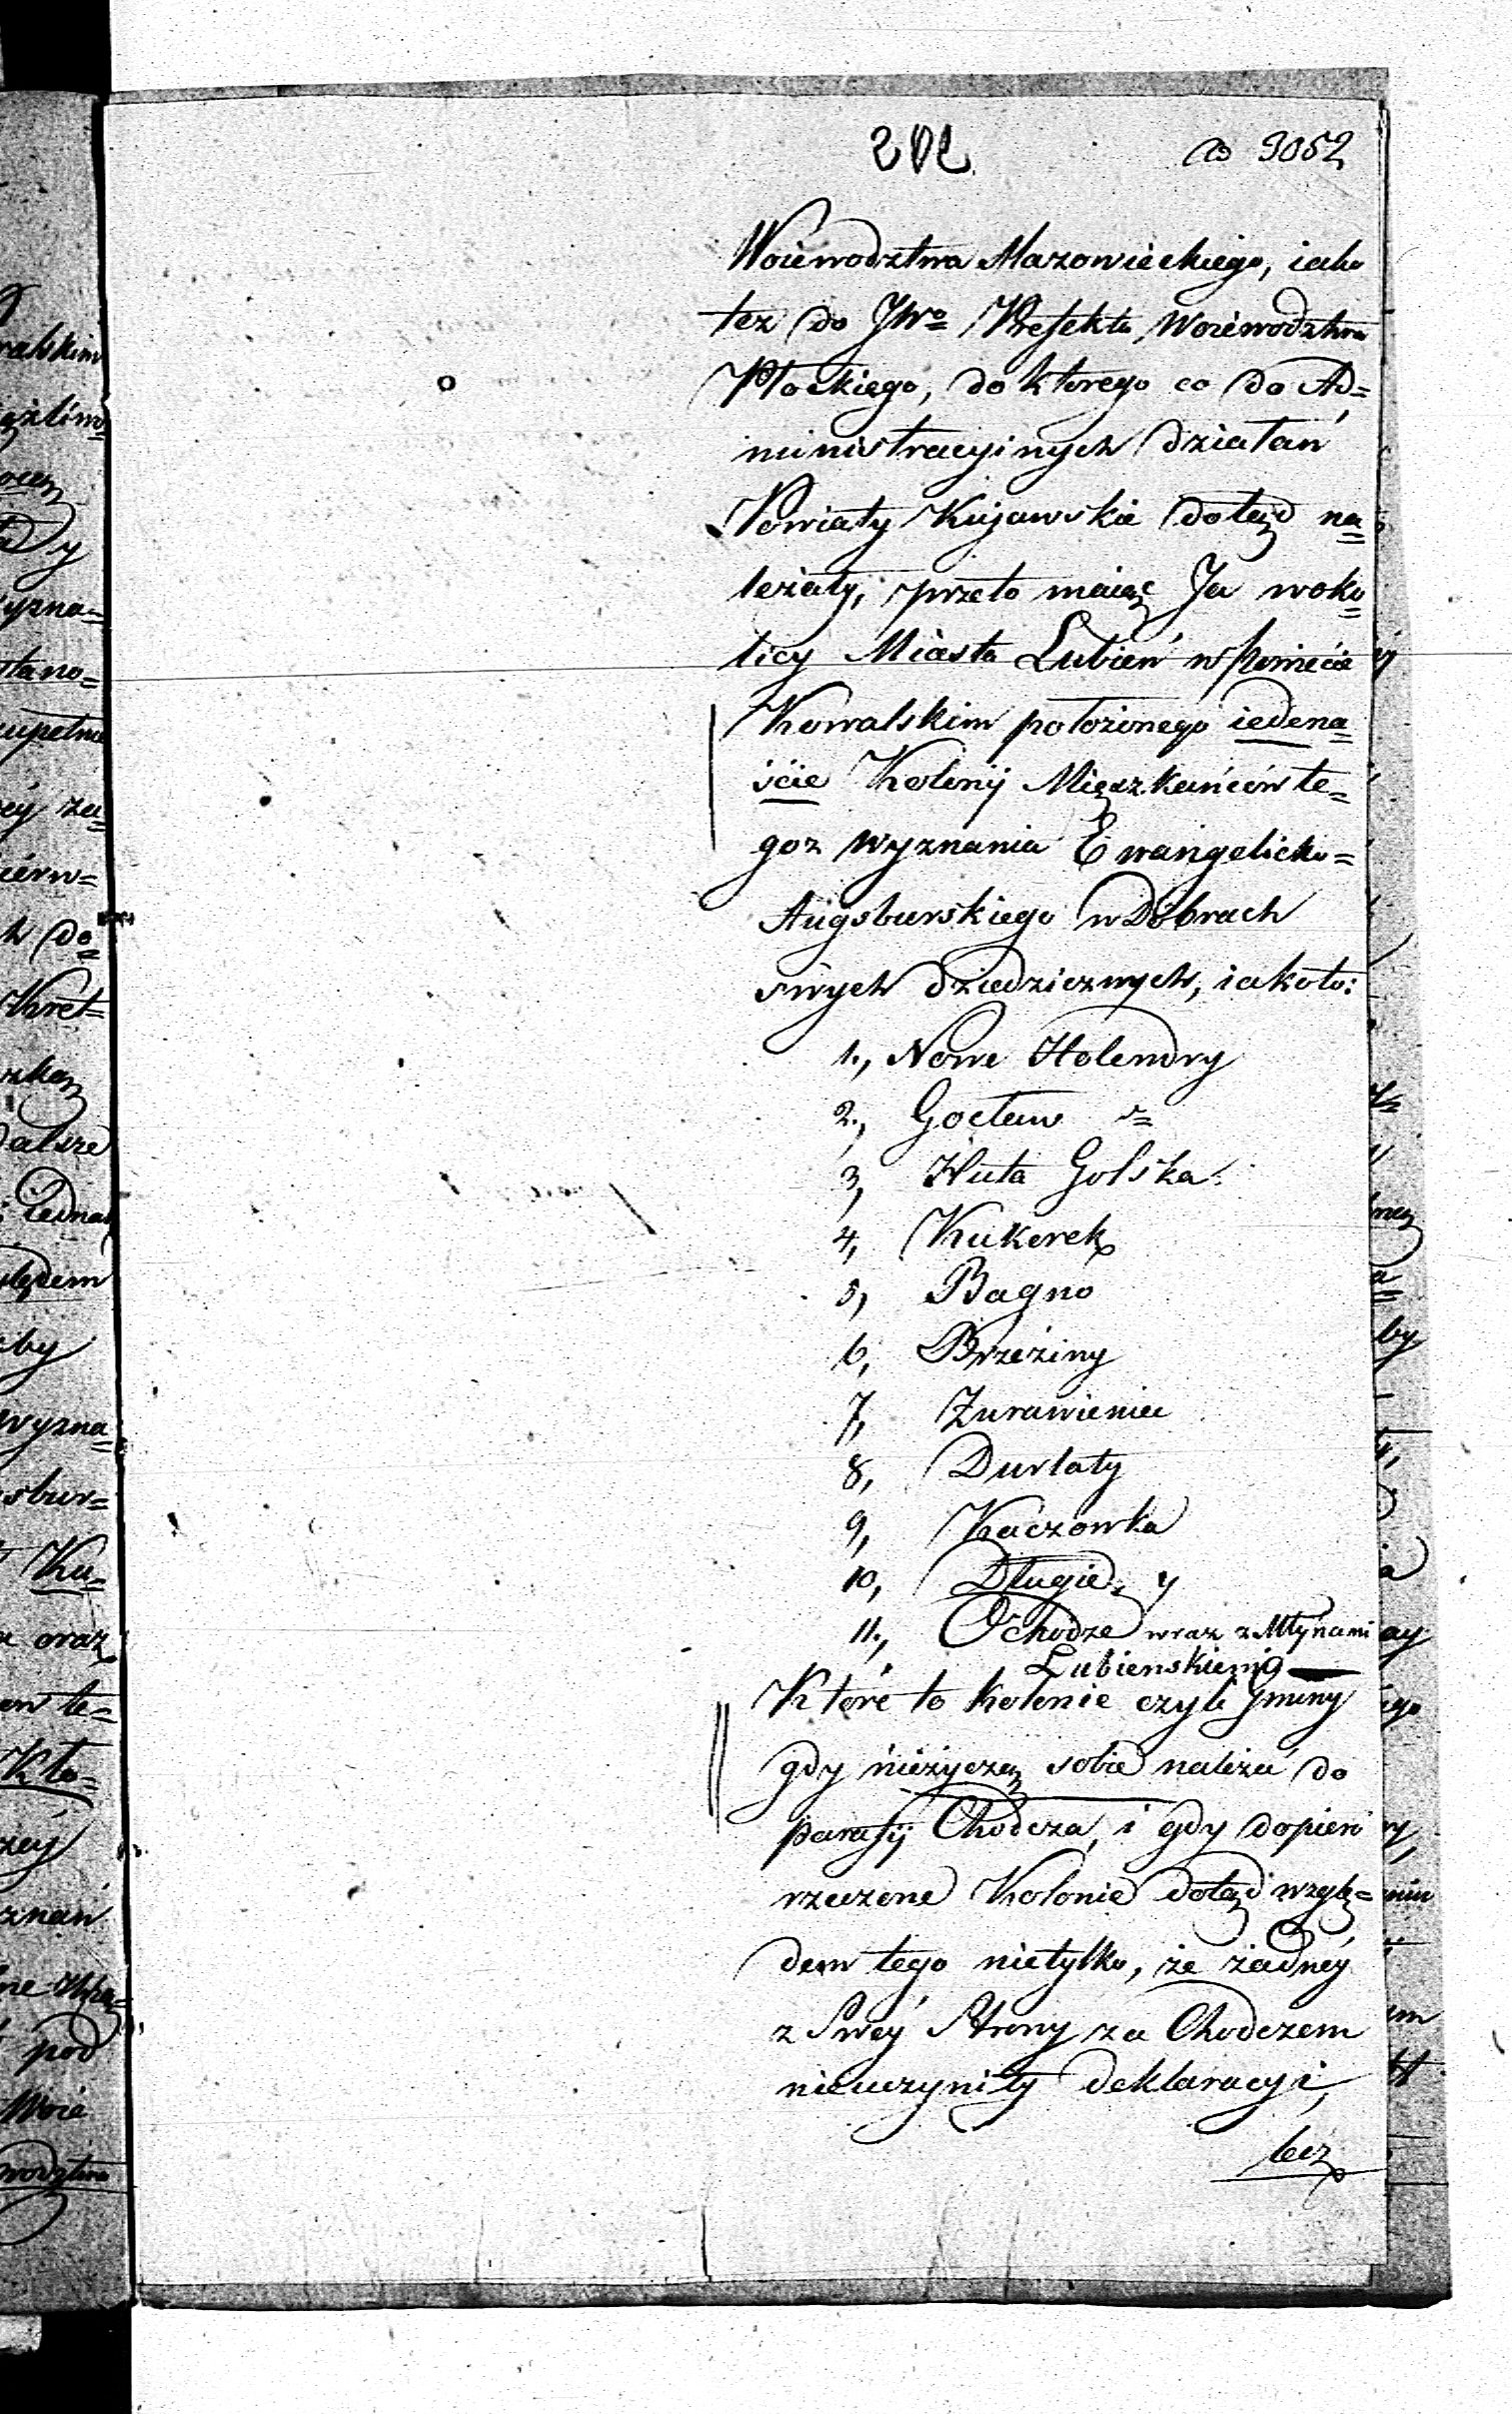 ad 3052
Woiewodztwa Mazowieckiego, iako
też do JWo Prefekta Woiewodztwa
Płockiego, do ktorego co do Ad=
ministracyinych działań
Powiaty Kujawskie dotąd na=
leżały, przeto maiąc Ja woko=
licy Miasta Lubień w Powiecie
Kowalskim położonego iedena=
ście Kolonij Mięszkańców te=
goz wyznania Ewangelicko=
Augsburskiego w Dobrach
swych dziedzicznych, iakoto:
1., Nowe Holendry
2., Gocław
3, Huta Golska
4, Kukorek
5, Bagno
6, Brzeziny
7, Żurawieniec
8, Durlaty
9, Kaczowka
10, Długie, y
11., Ochodze wraz z Młynami
Lubienskiemi
Które to kolonie czyli Gminy
gdy nieżyczą sobie należeć do
parafij Chodcza, i gdy dopiero
rzeczone Kolonie dotąd wzglę=
dem tego nietylko, że żadney
z Swey Strony za Chodczem
nieuczyniły deklaracyi,
lecz